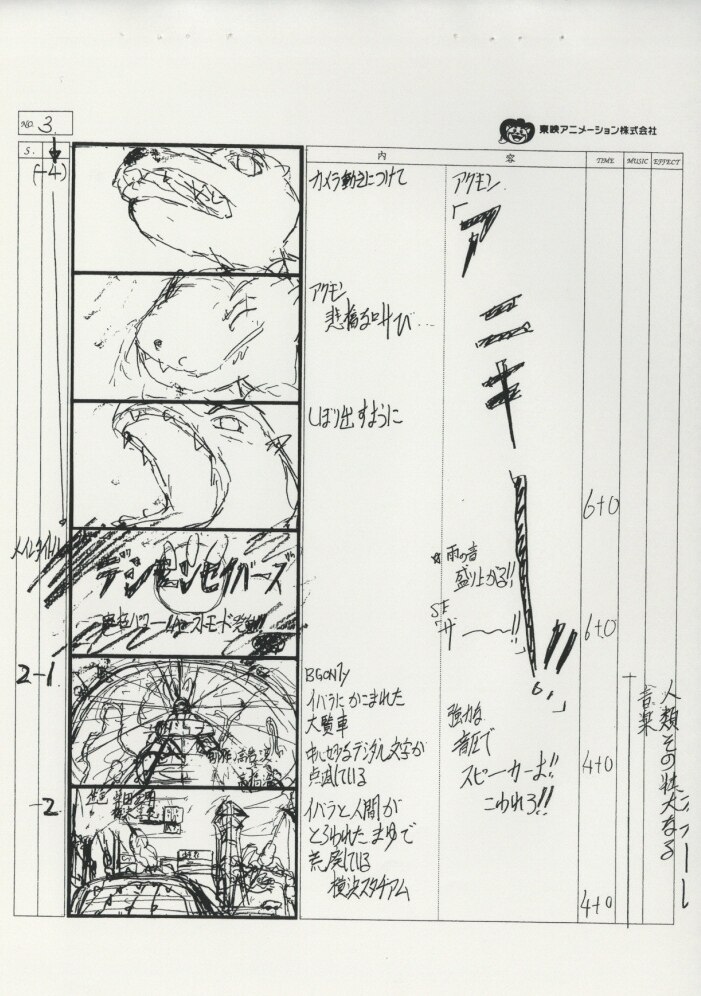 NO. 3
東映アニメーション株式会社
S.
内
容
TIME
MUSIC
EFFECT
(-4)
カメラ動きにつけて
アグモン
「アニキー
アグモン
悲痛な叫び…
しぼり出すように
6+0
メインタイトル
デジモンセイバーズ
☆雨の音
盛り上がる!!
SE
ザー〜〜!!
6+0
2-1
BGonly
イバラにかこまれた
大観車
中心でデジタル文字が
点滅している
強力な
音圧で
スピーカーよ!!
こわれろ!!
4+0
音楽
人類その壮大なる
-2
イバラと人間が
とらわれたまゆで
荒廃している
横浜スタジアム
4+0